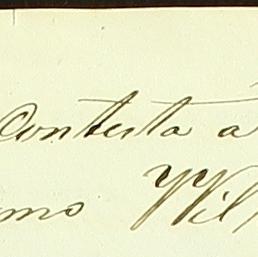 Contesta á
mo Wil